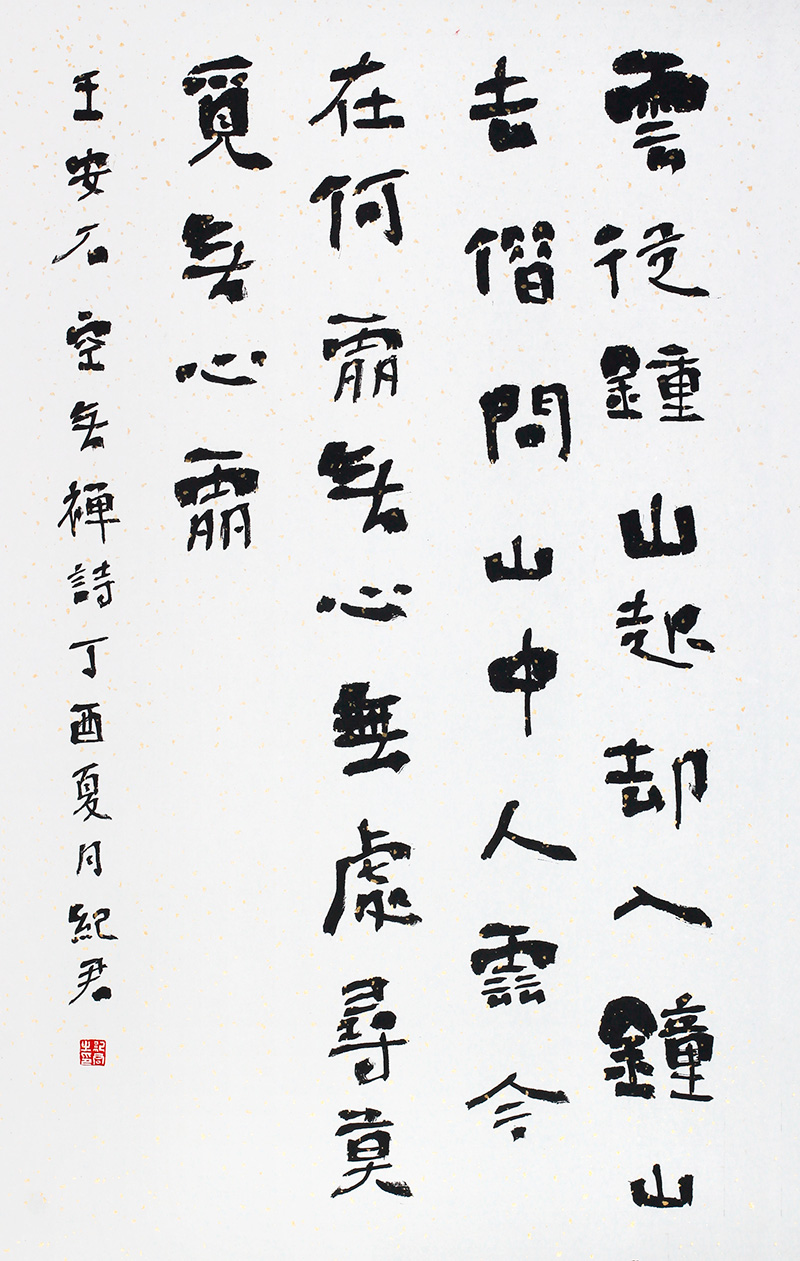 雲從鍾山起却入鐘山
去借問山中人雲今
在何處無心無處尋莫
覓無心處
王安石空無禪詩丁酉夏月紀君
紀君之印